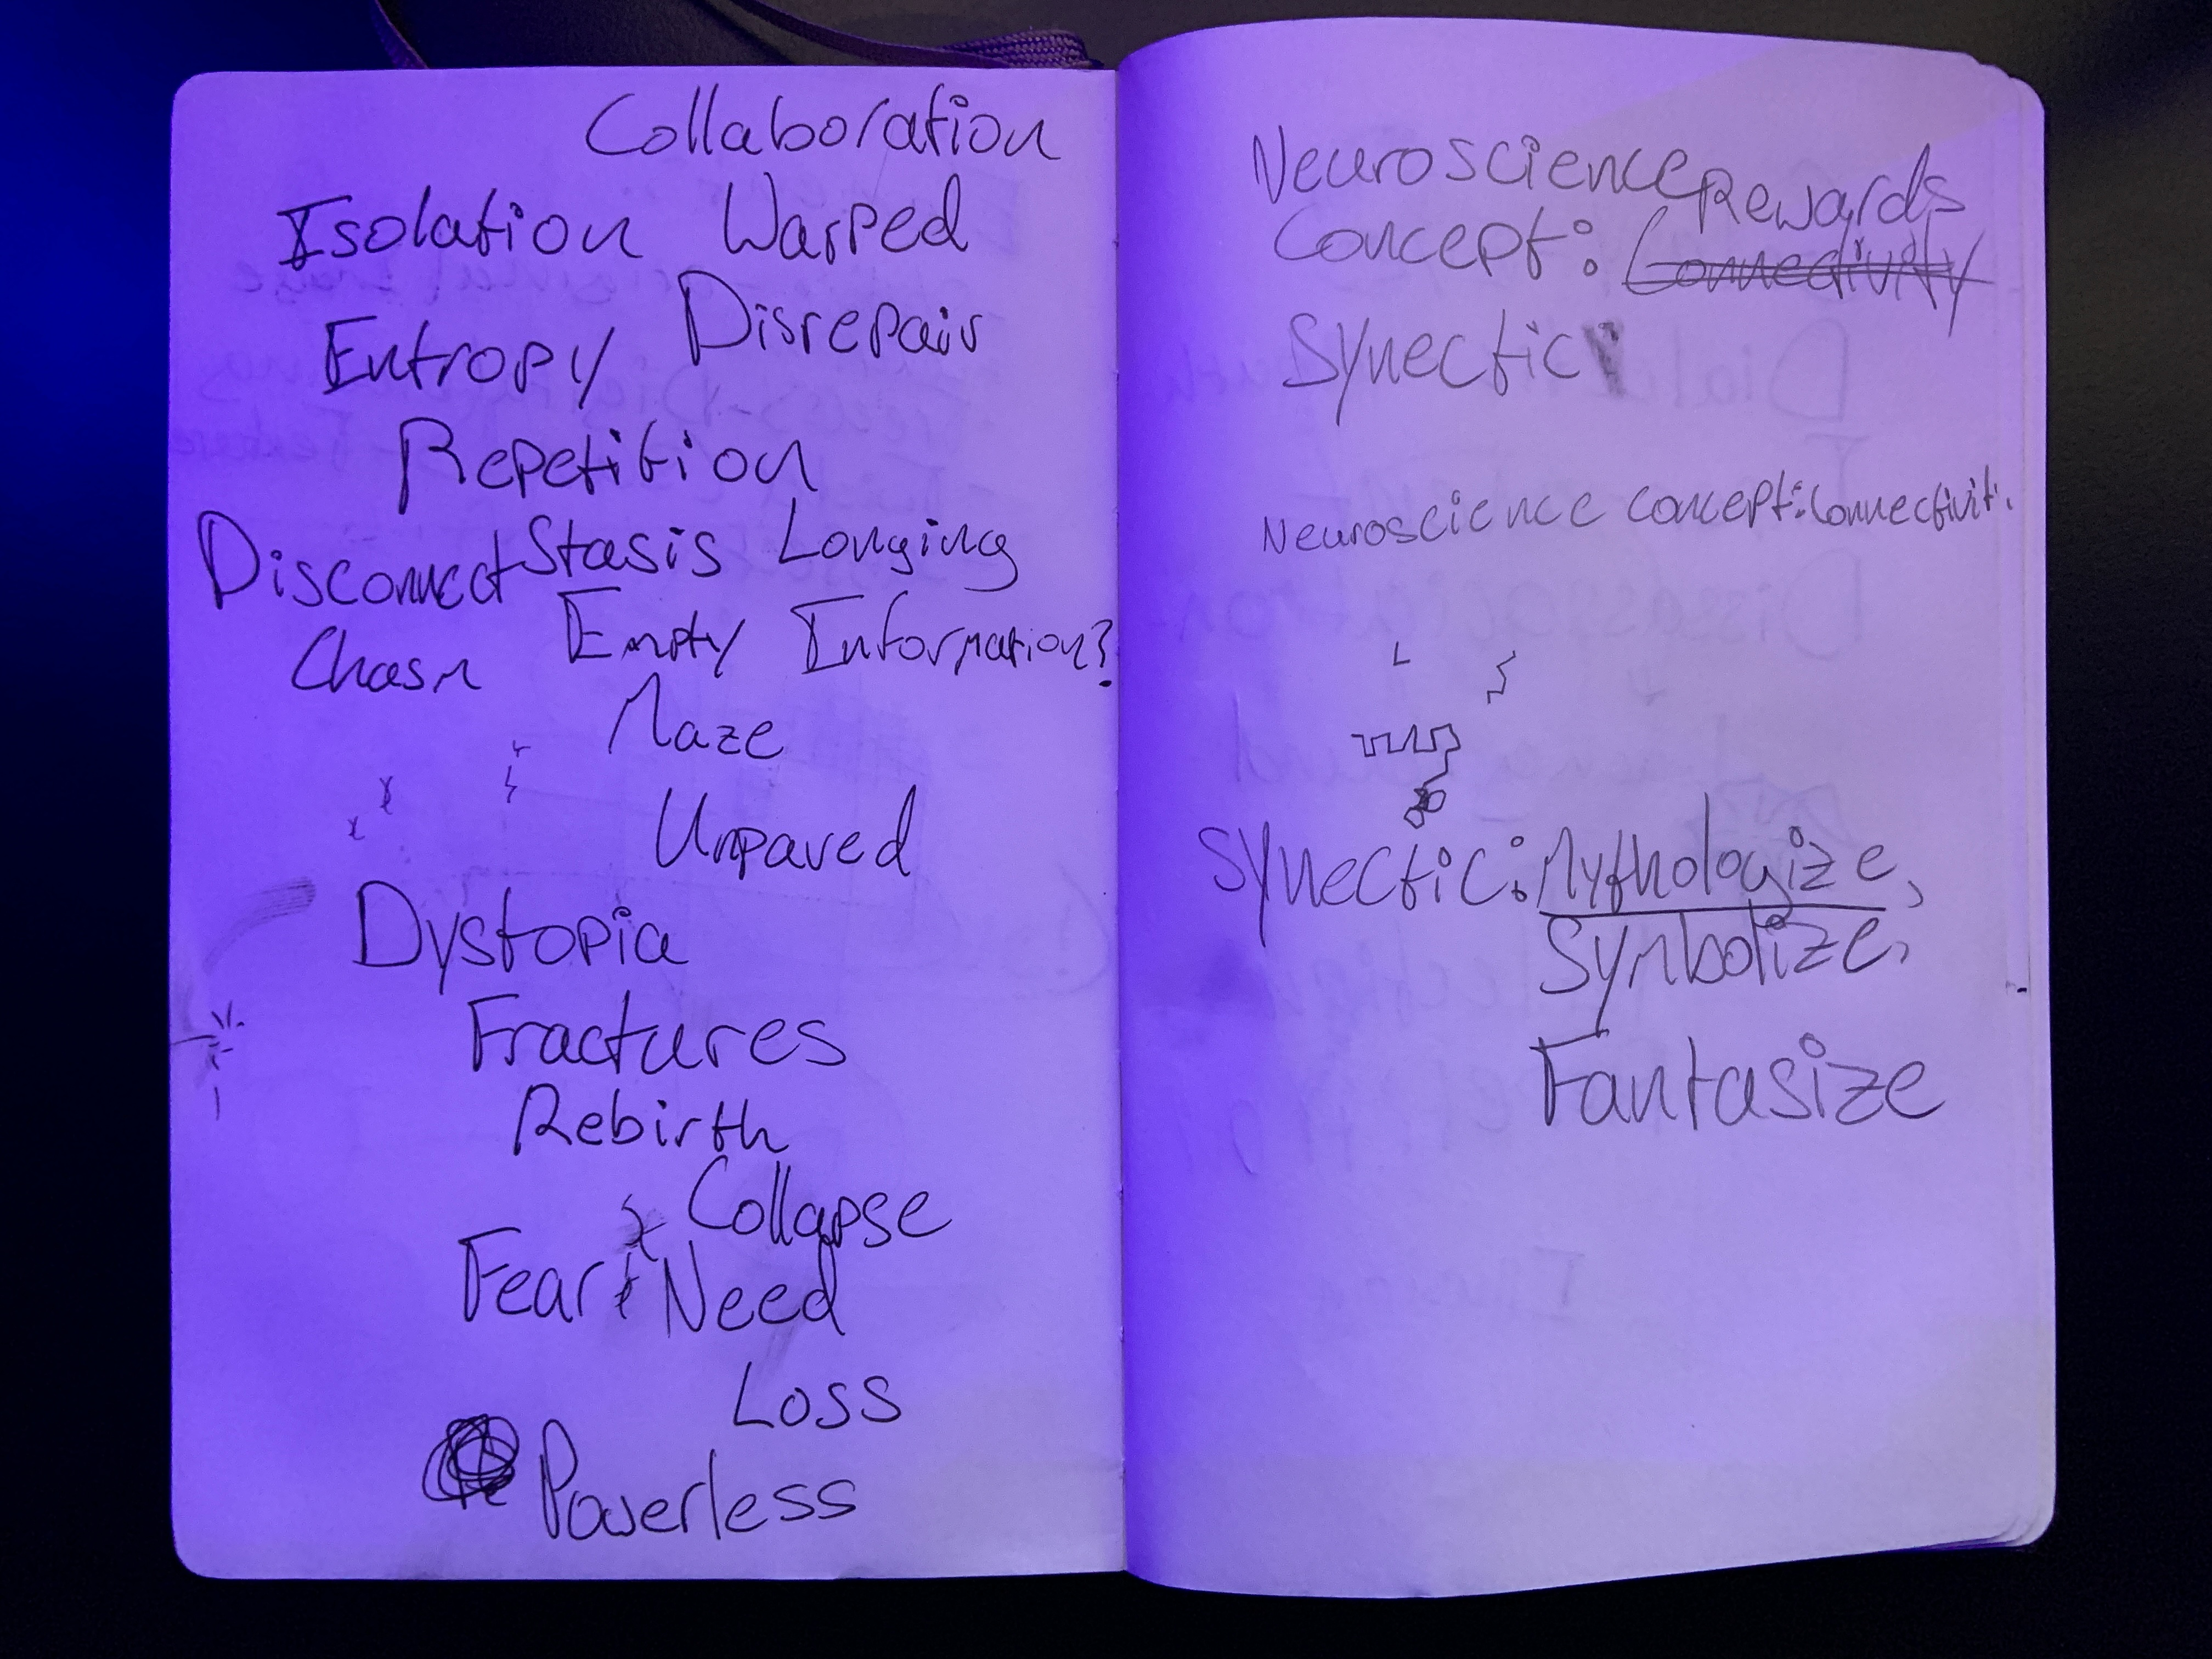 Collaboration
Isolation Warped
Entropy Disrepair
Repetition
Disconnect Stasis Longing
Chasm Empty Information?
Maze
Unpaved
Dystopia
Fractures
Rebirth
Collapse
Fear Need
Loss
Powerless
Neuroscience Rewards
Concept: Connectivity
Synectic
Neuroscience concept: Connectiviti
Synectic: Mythologize,
Symbolize,
Fantasize